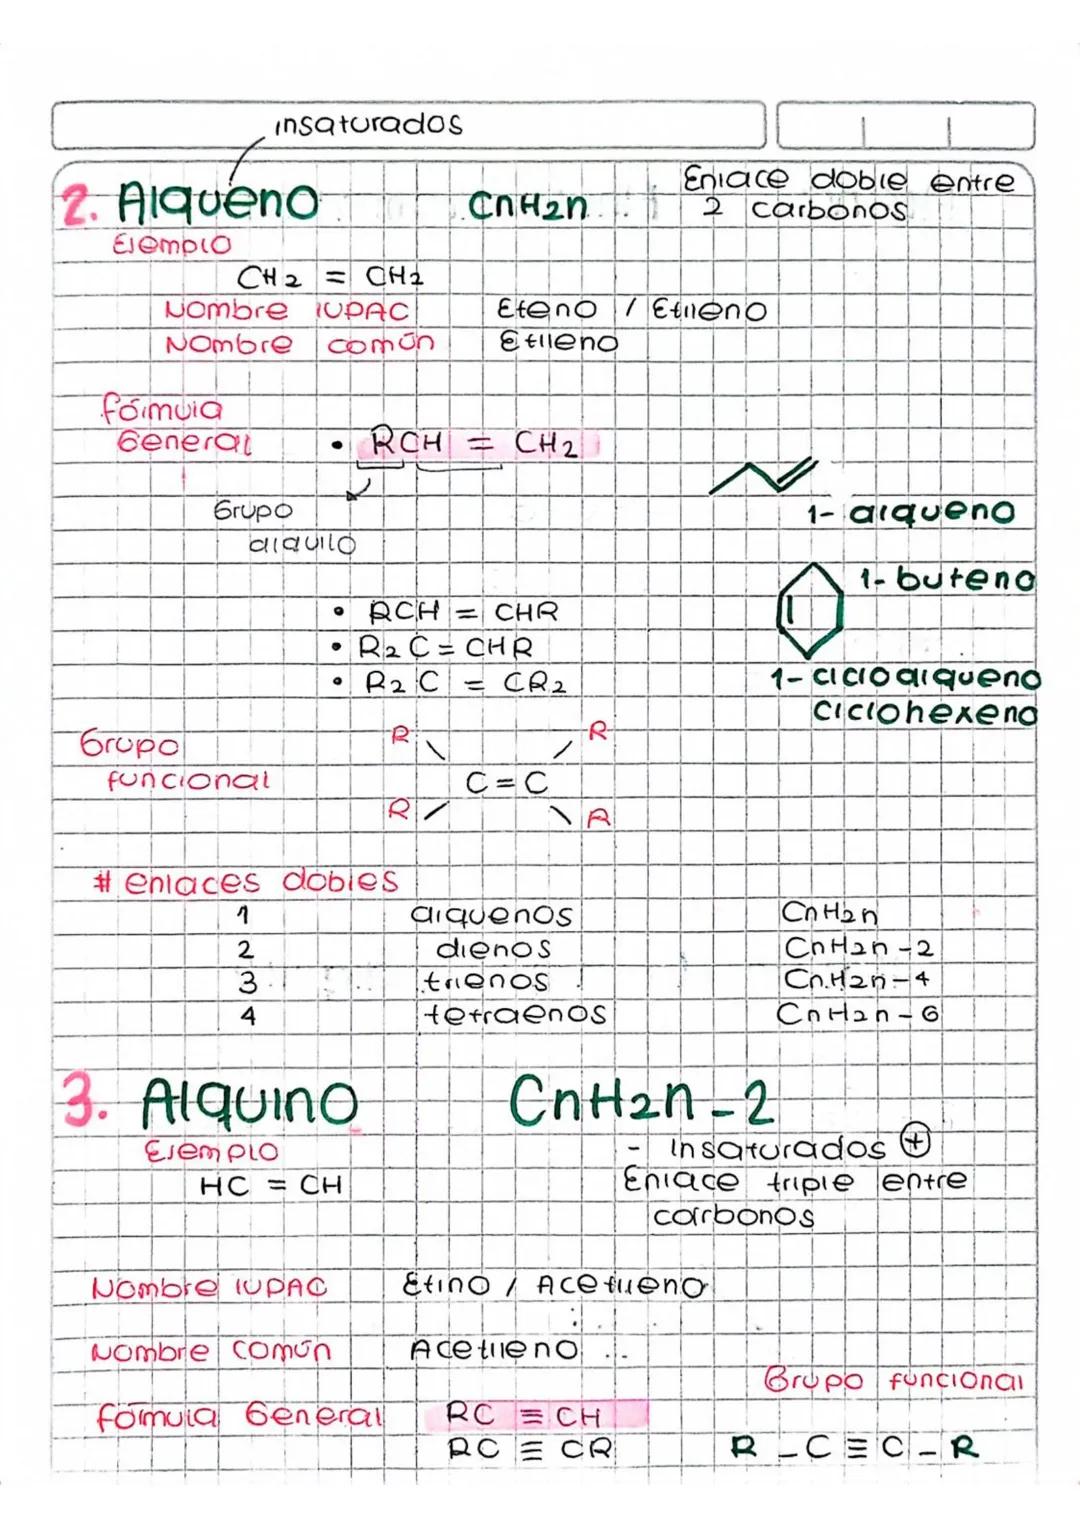 insaturados
2. Alqueno CnH2n Enlace doble entre
2 carbonos
Ejemplo
CH2 = CH2
Nombre IUPAC Eteno / Etileno
Nombre común Etileno
fórmula
General • RCH = CH2
Grupo
alquilo
1- alqueno
1- buteno
• RCH = CHR
• R2 C = CHR
• R2 C = CR2
1- cicloalqueno
ciclohexeno
Grupo
funcional
R R
C = C
R R
# enlaces dobles
1 alquenos CnH2n
2 dienos CnH2n -2
3 trienos CnH2n-4
4 tetraenos CnH2n-6
3. Alquino CnH2n-2
Ejemplo - Insaturados +
HC = CH Enlace triple entre
carbonos
Nombre IUPAC Etino / Acetileno
Nombre común Acetileno
Grupo funcional
fórmula General RC ≡ CH
RC ≡ CR R - C ≡ C - R